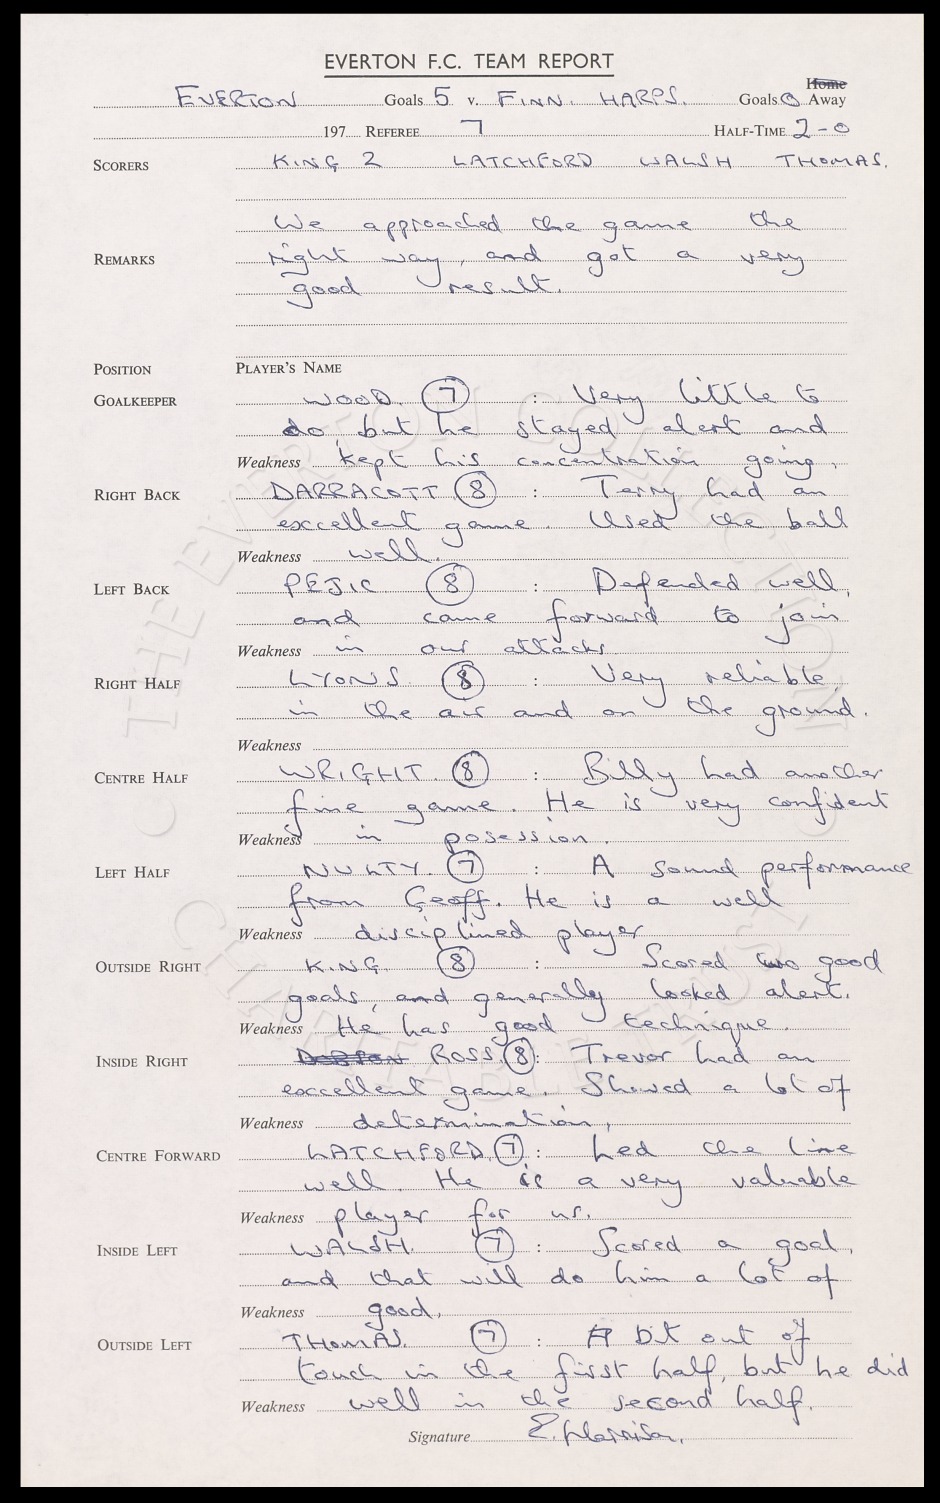 EVERTON F.C. TEAM REPORT
Home
EVERTON Goals 5 v. FINN. HARPS. Goals 0 Away
197 REFEREE 7 HALF-TIME 2-0
SCORERS KING 2 LATCHFORD WALSH THOMAS.
We approached the game the
REMARKS right way, and got a very
good result.
POSITION PLAYER'S NAME
GOALKEEPER WOOD. 7 : Very little to
do, but he stayed alert and
Weakness kept his concentration going.
RIGHT BACK DARRACOTT 8 : Terry had an
excellent game. Used the ball
Weakness well.
LEFT BACK PEJIC 8 : Defended well,
and came forward to join
Weakness in our attacks.
RIGHT HALF LYONS. 8 : Very reliable
in the air and on the ground.
Weakness
CENTRE HALF WRIGHT. 8 : Billy had another
fine game. He is very confident
Weakness in posession.
LEFT HALF NULTY. 7 : A sound performance
from Geoff. He is a well
Weakness disciplined player
OUTSIDE RIGHT KING. 8 : Scored two good
goals, and generally looked alert.
Weakness He has good technique.
INSIDE RIGHT DOBSON ROSS. 8 : Trevor had an
excellent game. Showed a lot of
Weakness determination.
CENTRE FORWARD LATCHFORD. 7 : Led the line
well. He is a very valuable
Weakness player for us.
INSIDE LEFT WALSH. 7 : Scored a goal,
and that will do him a lot of
Weakness good.
OUTSIDE LEFT THOMAS. 7 : A bit out of
touch in the first half, but he did
Weakness well in the second half.
Signature E. Harrison.
THE EVERTON COLLECTION
CHARITABLE TRUST